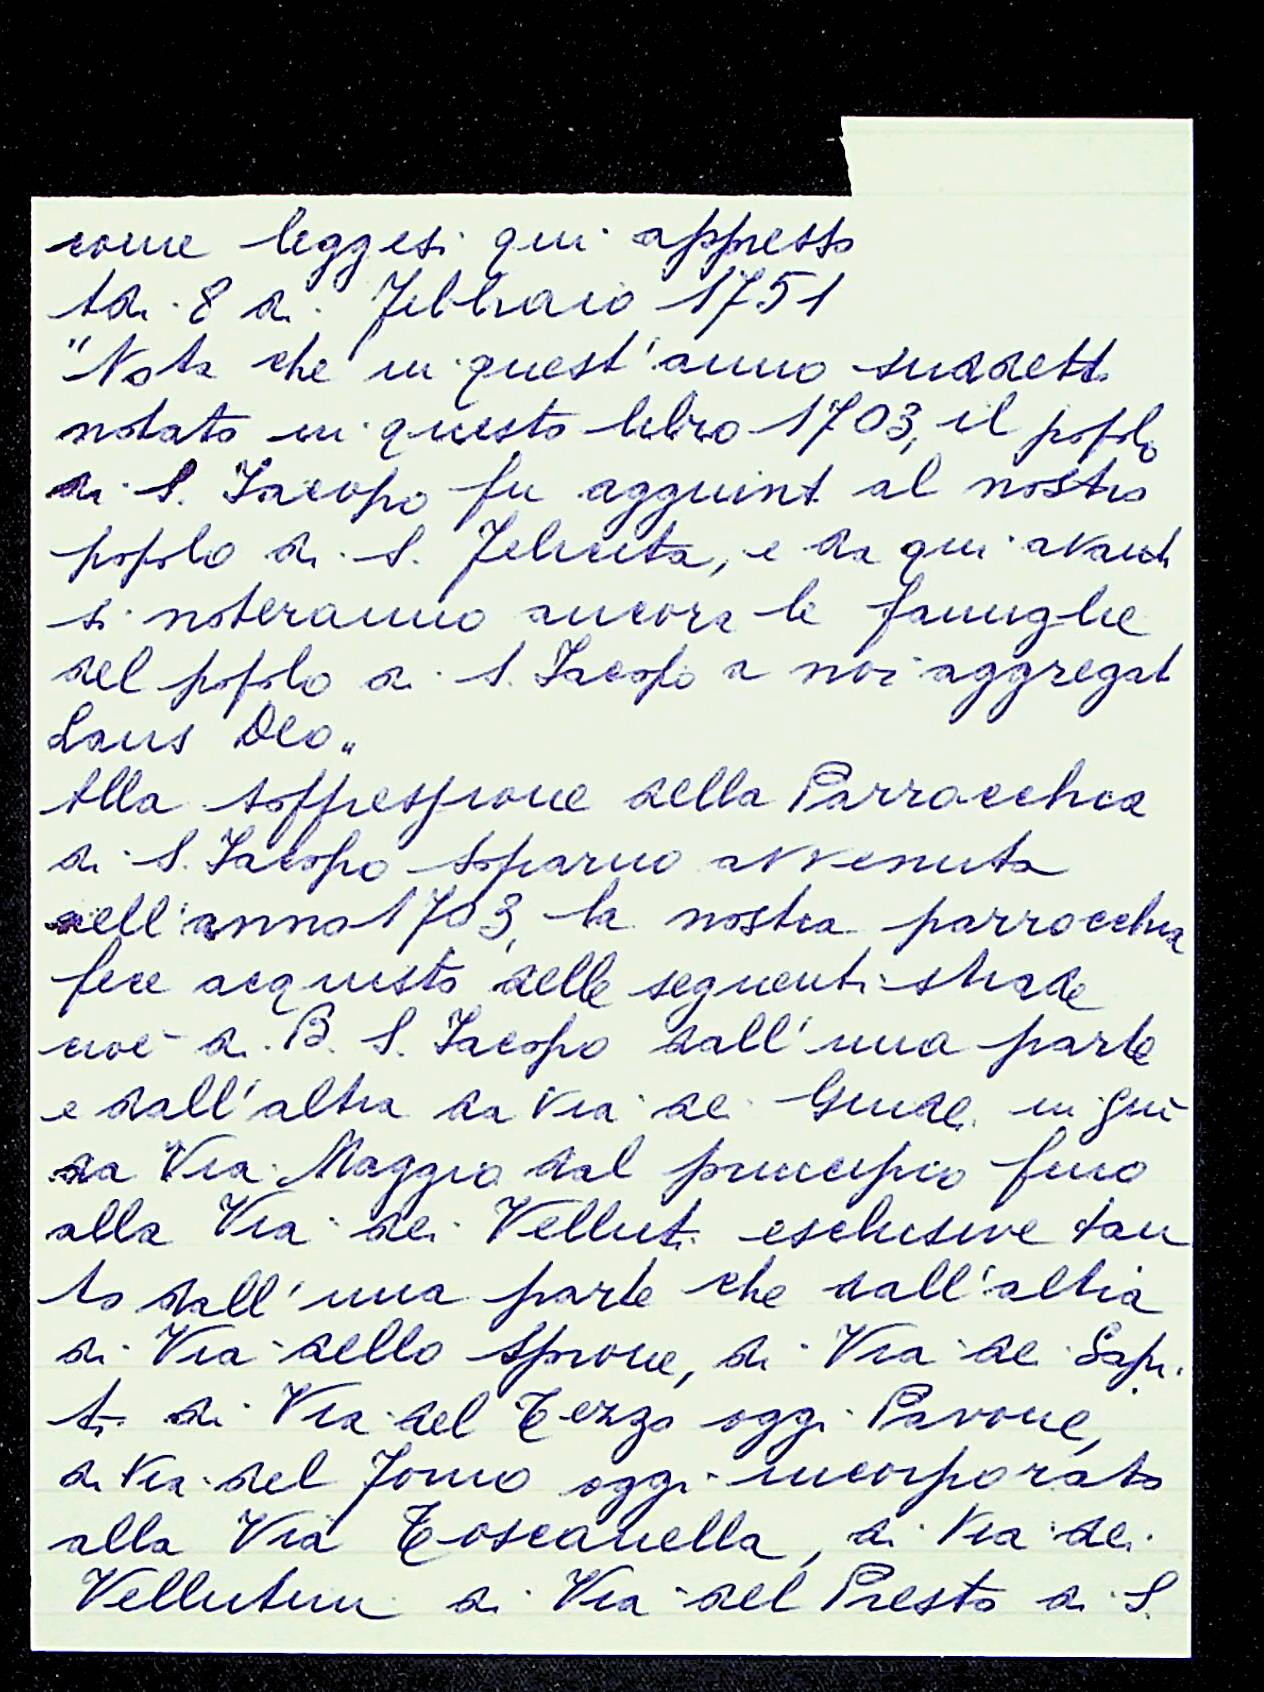 come leggesi qui appresso
Adi 8 di Febbraio 1751
"Nota che in quest'anno suddetto
notato in questo libro 1703, il popolo
di S. Iacopo fu aggiunt al nostro
popolo di S. Felicita, e da qui avanti
si noteranno ancora le famiglie
del popolo di S. Iacopo a noi aggregat
Laus Deo„
Alla soppressione della Parrocchia
di S. Iacopo Soparno avvenuta
nell'anno 1703, la nostra parrocchia
fece acquisto delle seguenti strade
cioè di B. S. Iacopo dall'una parte
e dall'altra da Via dei Guidi in giù
da Via Maggio dal principio fino
alla Via dei Velluti esclusive tan
to dall'una parte che dall'altra
di Via dello Sprone, di Via de Sapi.
ti di Via del Terzo oggi Pavone,
di Via del Forno oggi incorporato
alla Via Toscanella, di Via dei
Vellutini di Via del Presto di S.